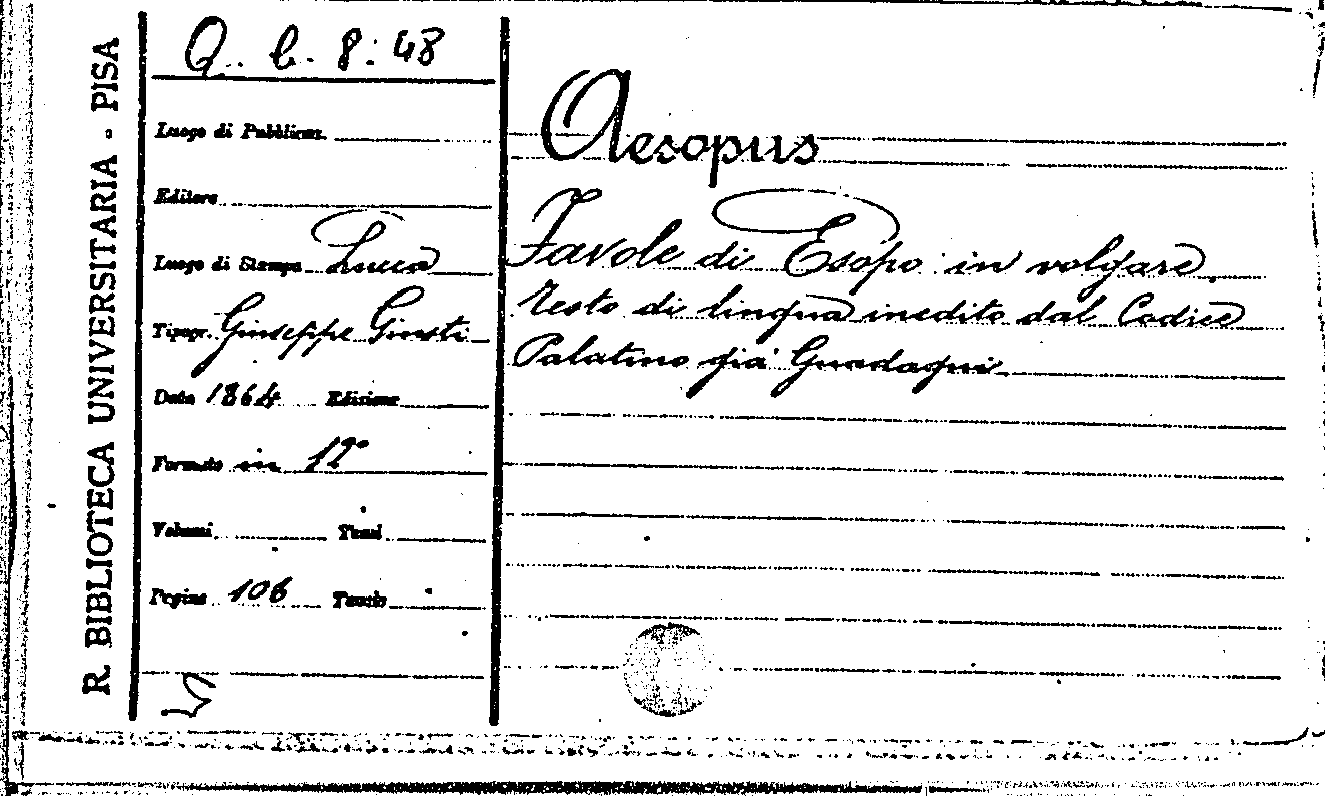 R. BIBLIOTECA UNIVERSITARIA - PISA
Q. b. 8: 48
Luogo di Pubblicaz.
Editore
Luogo di Stampa Lucca
Tipogr. Giuseppe Giusti
Data 1864 Edizione
Formato in 12°
Volumi Tomi
Pagine 106 Tavole
Aesopus
Favole di Esopo in volgare
testo di lingua inedito dal Codice
Palatino già Guadagni